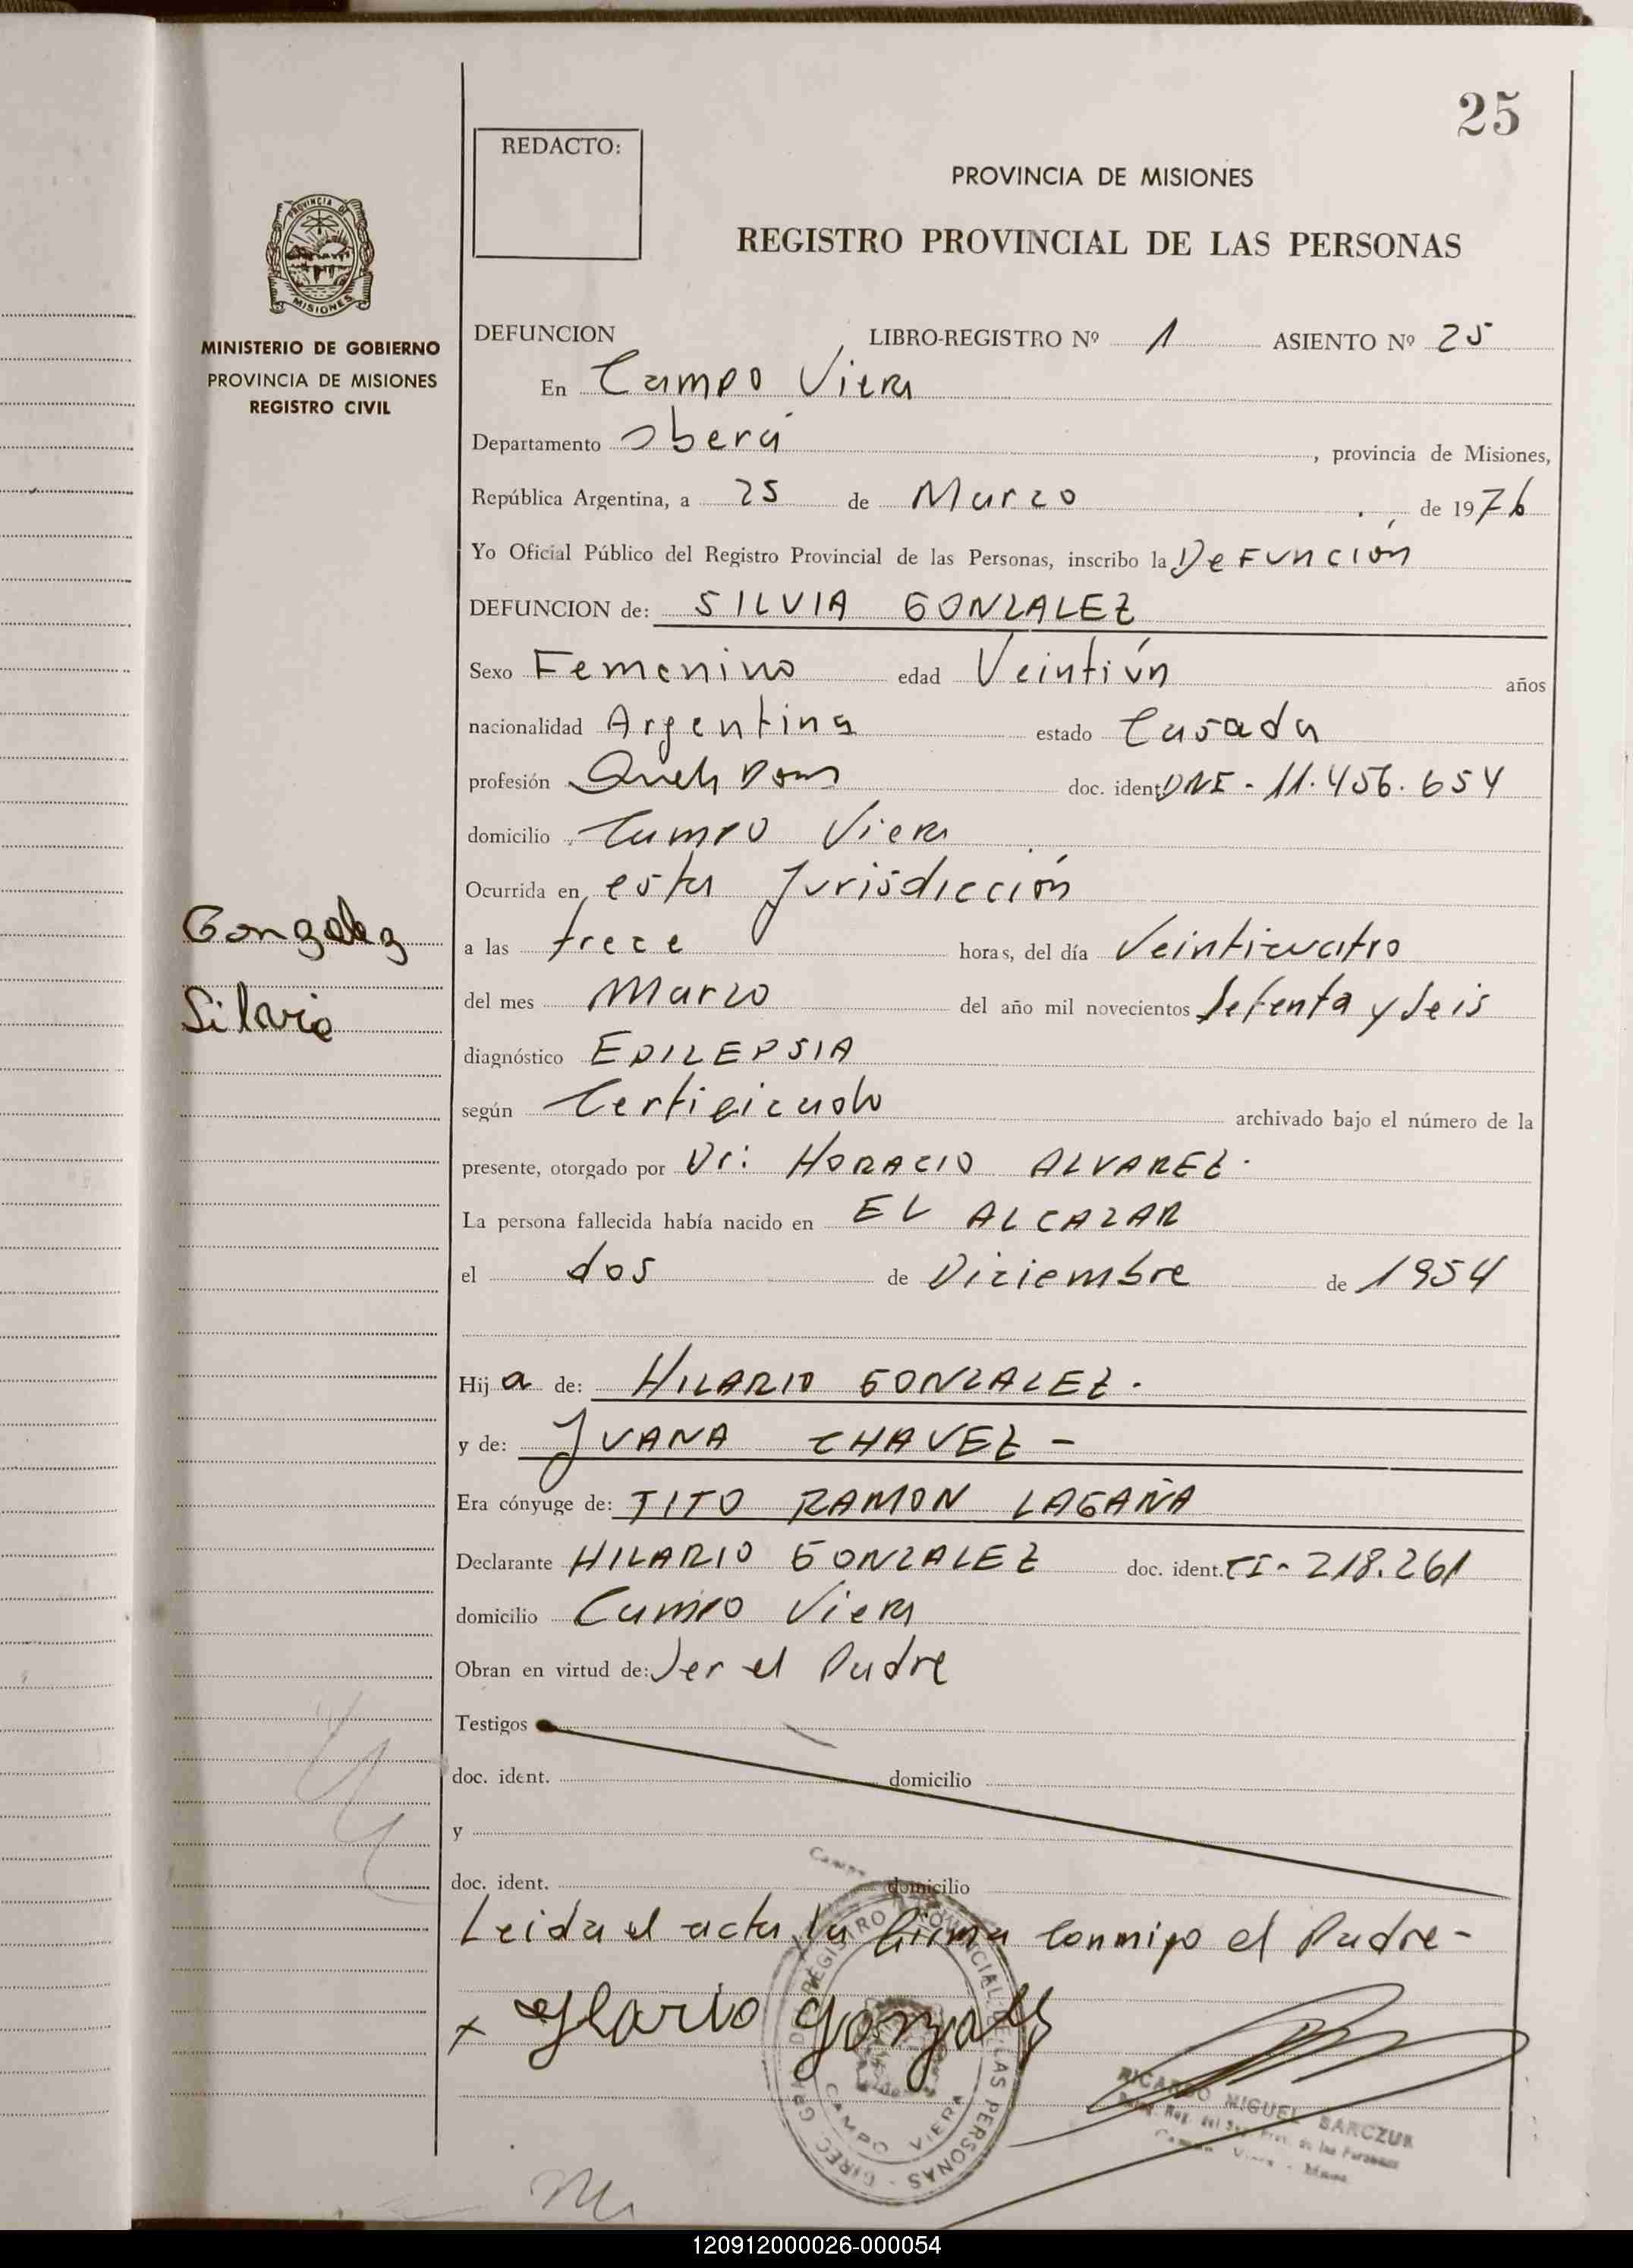 25
REDACTO:
PROVINCIA DE MISIONES
REGISTRO PROVINCIAL DE LAS PERSONAS
PROVINCIA DE
MISIONES
MINISTERIO DE GOBIERNO
PROVINCIA DE MISIONES
REGISTRO CIVIL
DEFUNCION LIBRO-REGISTRO Nº 1 ASIENTO Nº 25
En Campo Viera
Departamento Oberá, provincia de Misiones,
República Argentina, a 25 de Marzo de 1976
Yo Oficial Público del Registro Provincial de las Personas, inscribo la Defunción
DEFUNCION de: SILVIA GONZALEZ
Sexo Femenino edad Veintiún años
nacionalidad Argentina estado Casada
profesión Queh Dom doc. ident DNI - 11.456.654
domicilio Campo Viera
Ocurrida en esta Jurisdicción
Gonzalez
a las trece horas, del día Veinticuatro
Silvia
del mes Marzo del año mil novecientos Setenta y Seis
diagnóstico EPILEPSIA
según Certificado archivado bajo el número de la
presente, otorgado por Dr: HORACIO ALVAREZ.
La persona fallecida había nacido en EL ALCAZAR
el dos de Diciembre de 1954
Hija de: HILARIO GONZALEZ.
y de: JUANA CHAVEZ -
Era cónyuge de: TITO RAMON LAGAÑA
Declarante HILARIO GONZALEZ doc. ident. CI - 218.261
domicilio Campo Viera
Obran en virtud de: Ser el Padre
Testigos
doc. ident. domicilio
y
doc. ident. domicilio
Leida el acta, la firma conmigo el Padre -
x Ylario Gonzalez
DIREC. GRAL. DEL REGISTRO PROVINCIAL DE LAS PERSONAS
CAMPO VIERA
RICARDO MIGUEL BARCZUK
120912000026-000054